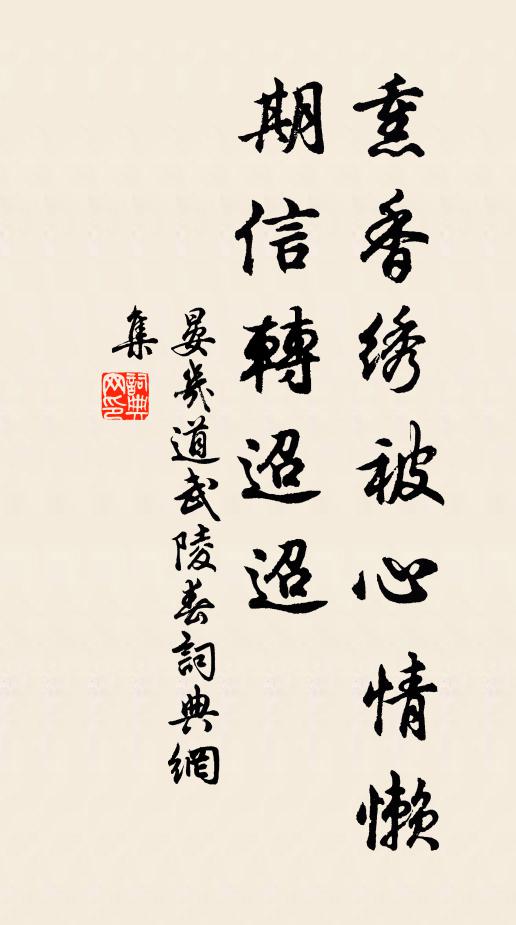 熏香绣被心情懒
期信轉迢迢
晏幾道武陵春詞典網
集
詞典
网印